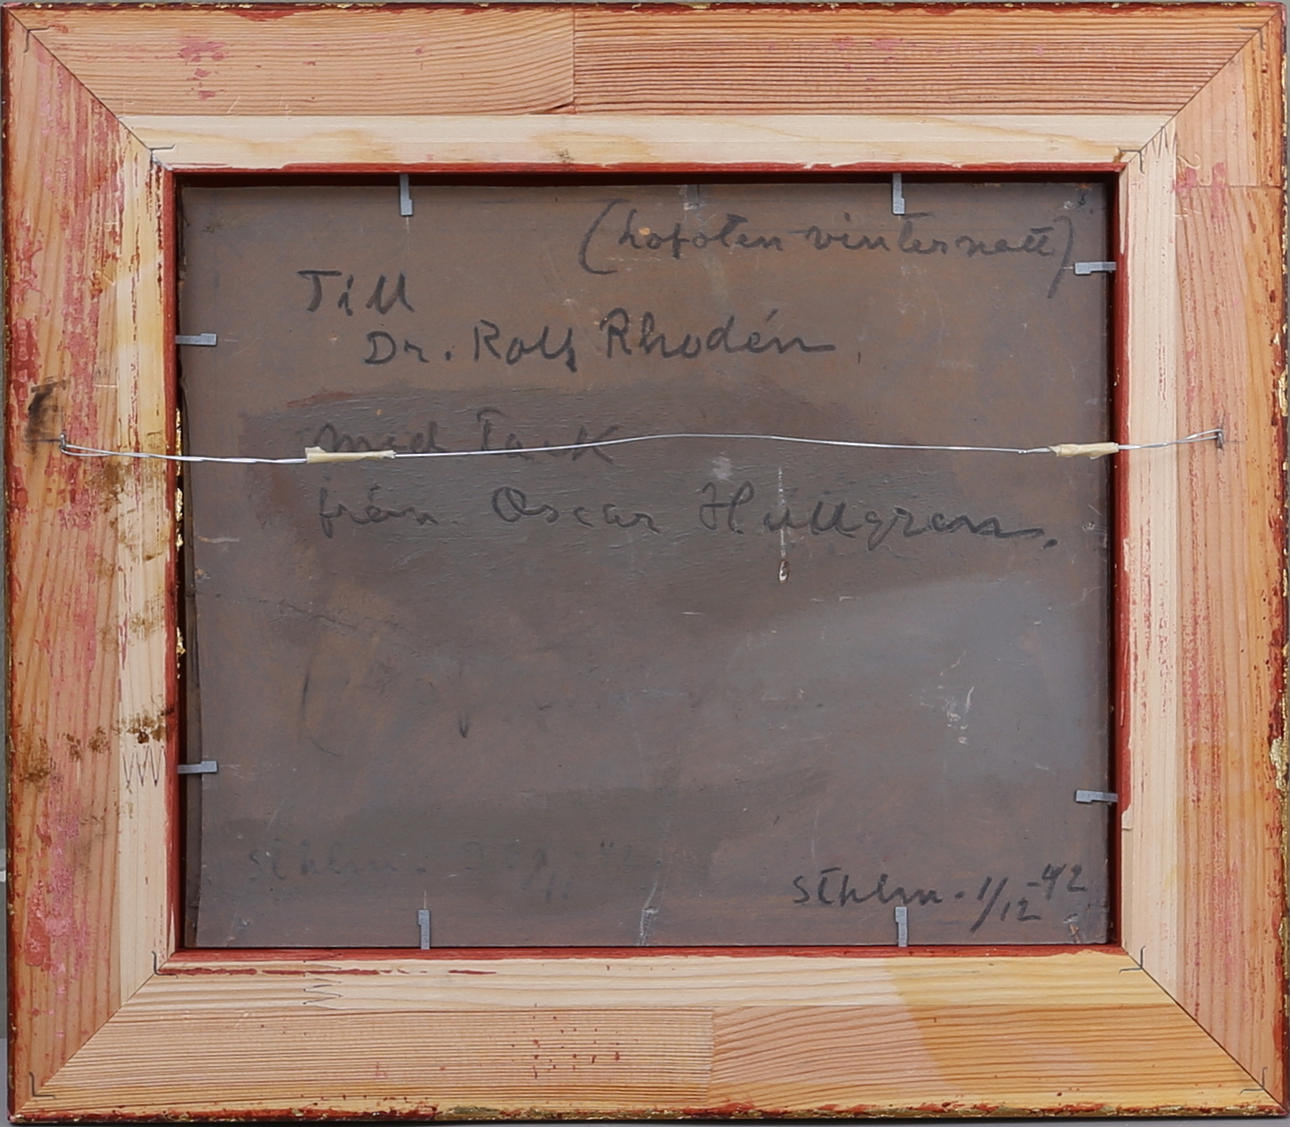 (Lofoten vinternatt)
Till
Dr. Rolf Rhodén.
med Tack
från. Oscar Hullgren.
Sthlm.
Sthlm. 1/12 -42